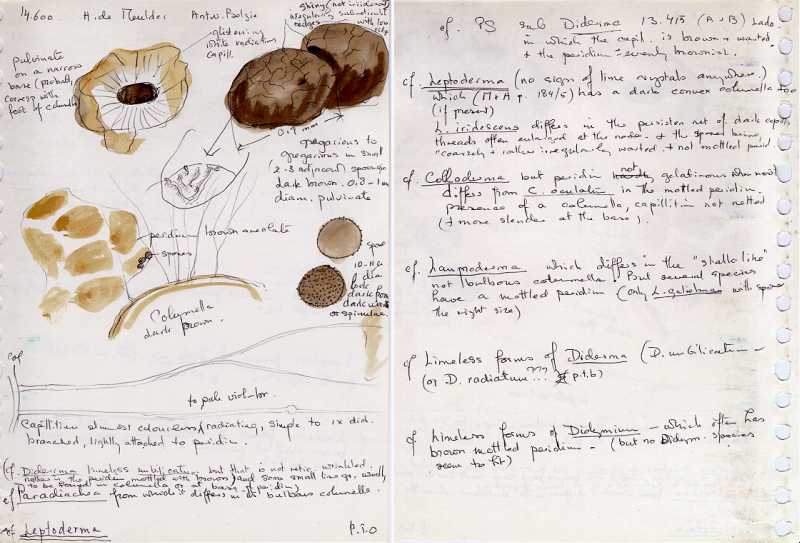 14.600 H. de Meulder Antw. Belgie
pulvinate
on a narrow
base (probably
convex with
foot of columella
glistening
white radiating
capill.
shiny (not iridescent)
irregularly
ridges with low
0.9 mm
gregarious to
gregarious in small
(2-3 adjacent) sporangia
dark brown. 0.8-1 mm
diam. pulvinate
peridium brown areolate
spores
spore
10-11 µ
dia
dark
dark
or spinulae
Columella
dark brown.
Col
to pale violet or
Capillitium almost colourless, radiating, simple to 1x dich.
branched, lightly attached to peridium.
(cf. Diderma limeless umbilicatum but that is not retic. wrinkled
neither is the peridium mottled with brown) and some small lines, usually
to be found in columella or at base of peridium)
cf Paradiachea from which it differs in its bulbous columella.
cf Leptoderma
P.T.O
cf. PS sub Diderma 13.415 (A+B) Lado
in which the capil. is brown + warted
+ the peridium evenly brownish.
cf. Leptoderma (no sign of lime crystals anywhere.)
which (M+A p. 184/5) has a dark convex columella too
(if present)
L. iridescens differs in the persisten net of dark capill.
threads often enlarged at the nodes. + the spores being
"coarsely + rather irregularly warted. + not mottled perid
cf. Colloderma but peridium not gelatinous when moist
differs from C. oculatum in the mottled peridium.
presence of a columella, capillitium not netted
(+ more slender at the base).
cf. Lamproderma which differs in the "stalk like"
not bulbous columella. But several species
have a mottled peridium (only L. gulielmae with spores
the right size)
cf Limeless forms of Diderma (D. umbilicatum -
(or D. radiatum ??? p.t.b)
cf Limeless forms of Didymium - which often has
brown mottled peridium - (but no Didym. species
seem to fit)